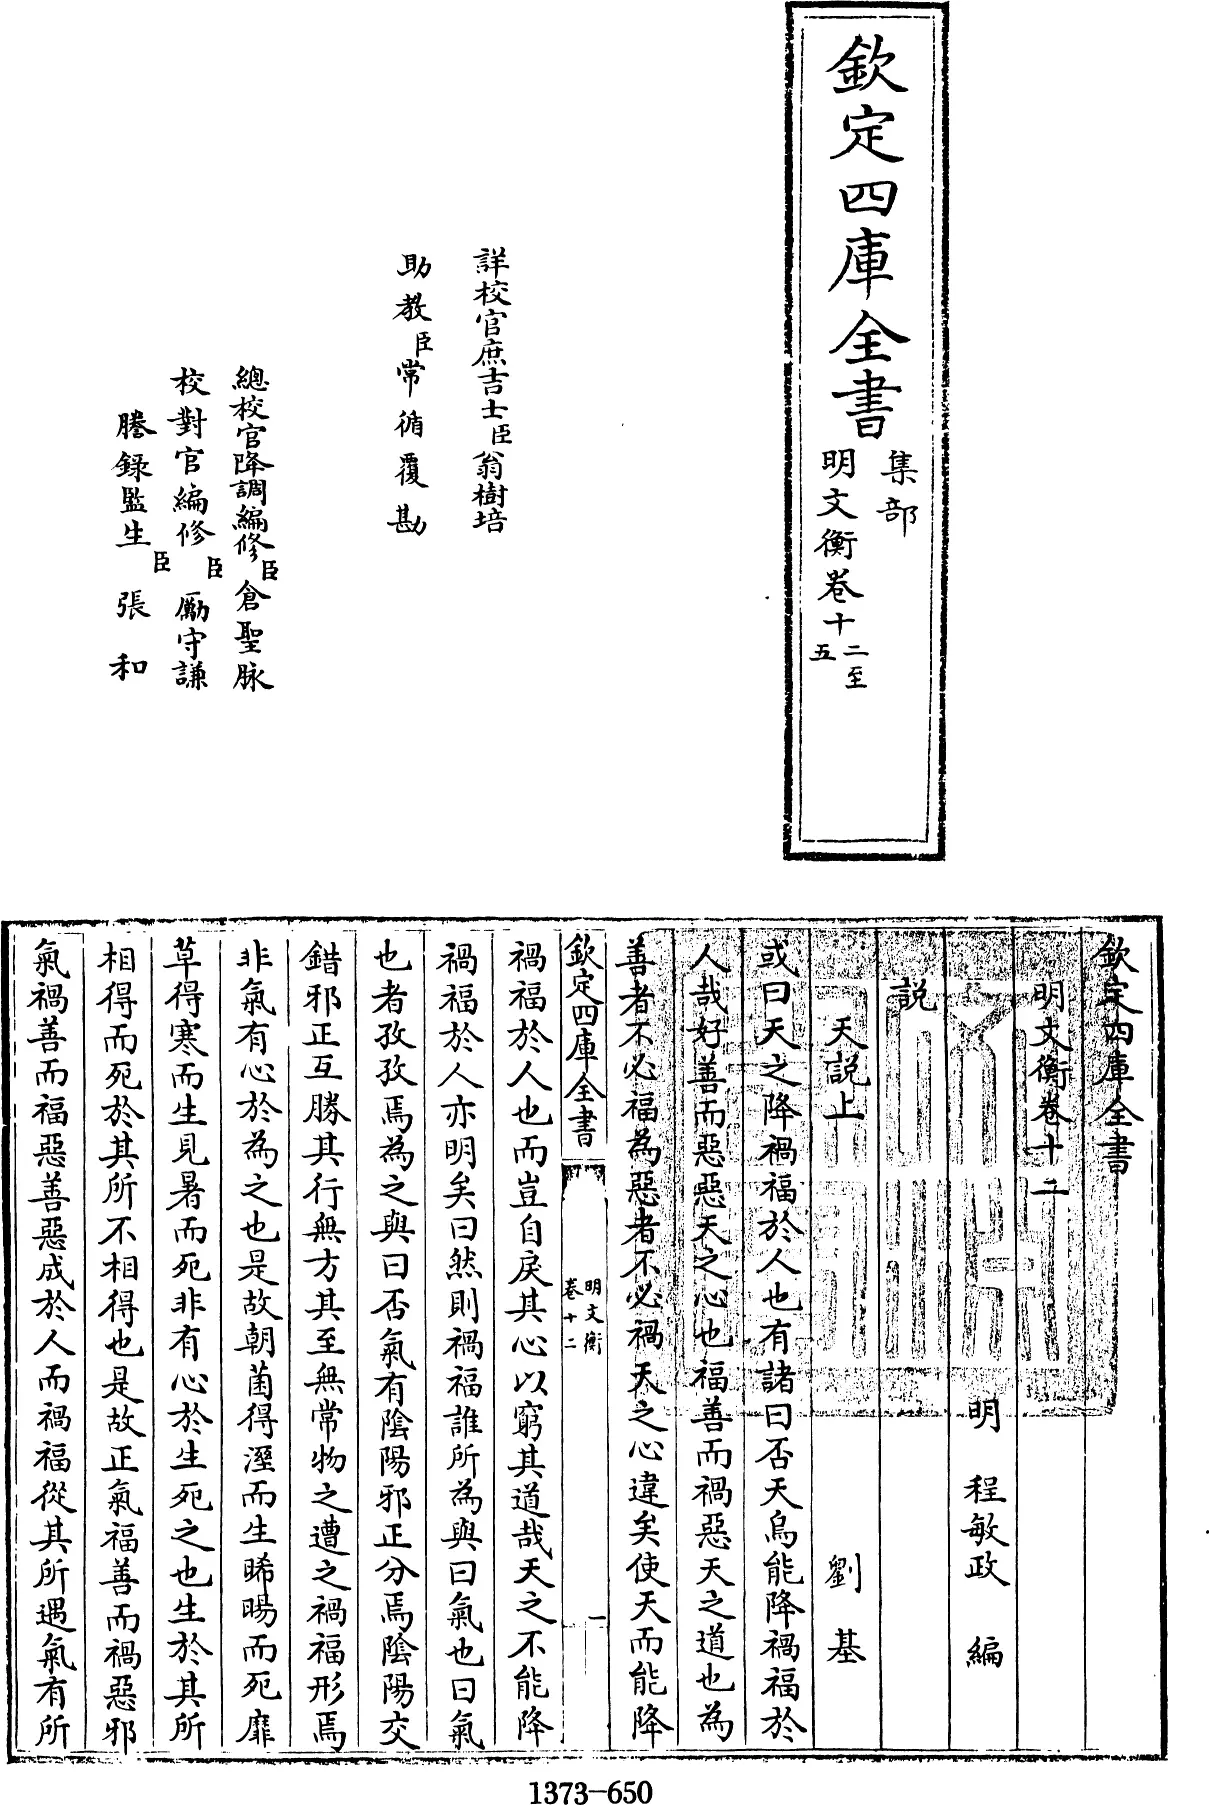 欽定四庫全書
集部
明文衡卷十二至五
詳校官庶吉士臣翁樹培
助教臣常循覆勘
總校官降調編修臣倉聖脉
校對官編修臣勵守謙
謄錄監生臣張和
欽定四庫全書
明文衡卷十二
明 程敏政 編
說
天說上 劉基
或曰天之降禍福於人也有諸曰否天烏能降禍福於
人哉好善而惡惡天之心也福善而禍惡天之道也為
善者不必福為惡者不必禍天之心違矣使天而能降
欽定四庫全書
明文衡
卷十二
一
禍福於人也而豈自戾其心以窮其道哉天之不能降
禍福於人亦明矣曰然則禍福誰所為與曰氣也曰氣
也者孜孜焉為之與曰否氣有陰陽邪正分焉陰陽交
錯邪正互勝其行無方其至無常物之遭之禍福形焉
非氣有心於為之也是故朝菌得溼而生晞暘而死靡
草得寒而生見暑而死非有心於生死之也生於其所
相得而死於其所不相得也是故正氣福善而禍惡邪
氣禍善而福惡善惡成於人而禍福從其所遇氣有所
1373-650